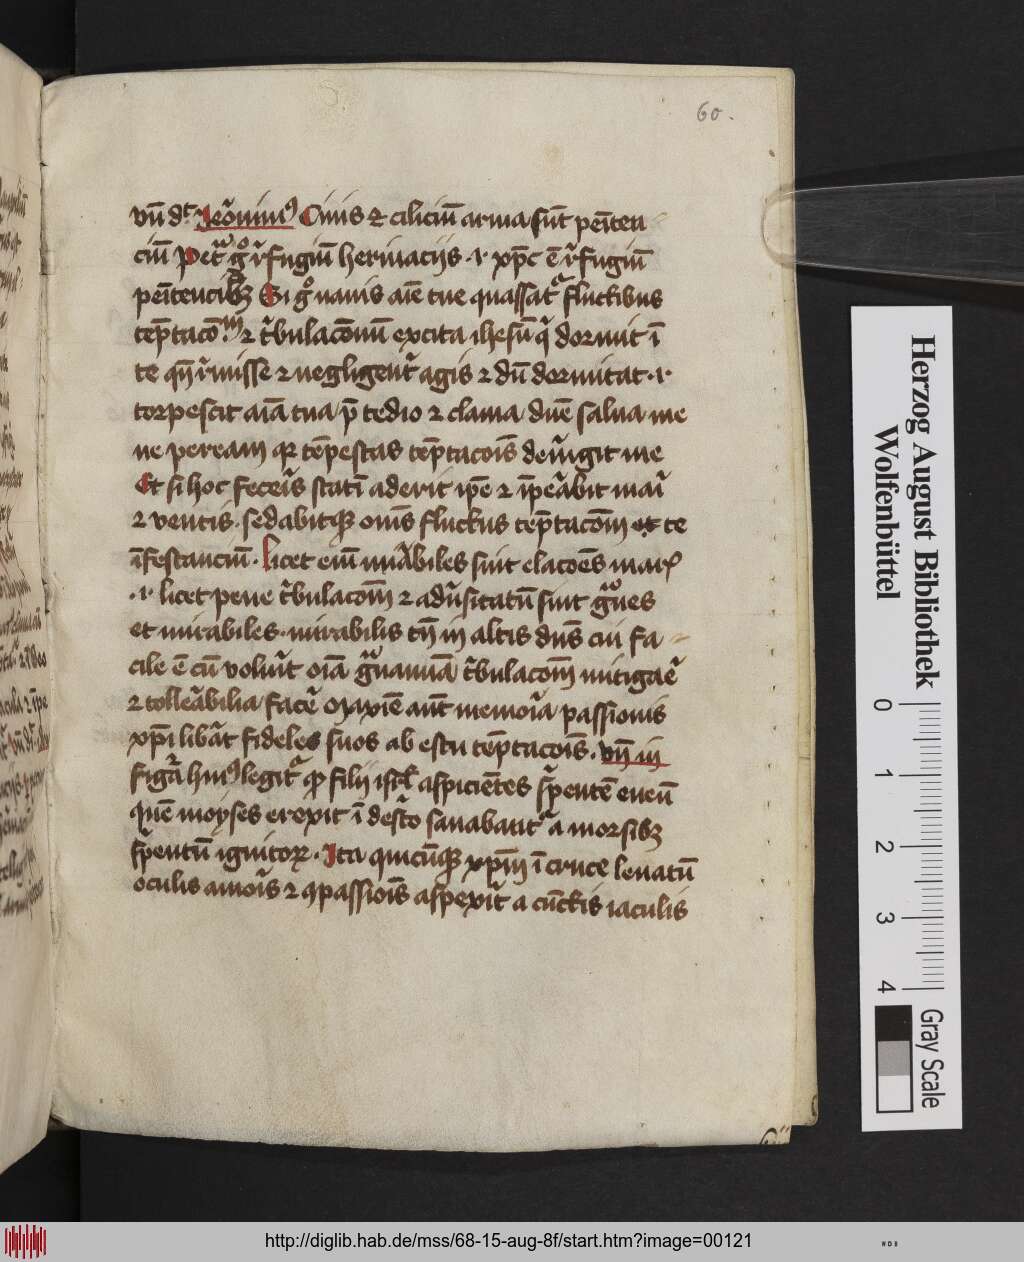 60.
vn̄ dt Jeronimꝰ Cinis ⁊ ciliciū arma sūt penitē
ciū Petᵃ gͦ r̄fugiū herinaciis · i · xp̄c ē r̄fugiū
penitētibꝫ Si gͦ nauis aīe tue quassatᷣ fluctibus
tēptacōm ⁊ t̄bulacōnū excita ihesū qͥ dormit ī
te qn̄ r̄misse ⁊ negligent̄ agis ⁊ dū dormitat · i ·
torpescit aīa tua p̄ tedio ⁊ clama dn̄e salua me
ne peream qꝛ tēpestas tēptacōis demergit me
Et si hoc fecer̄is statī aderit ip̄e ⁊ īperabit mar̄i
⁊ ventis · sedabitqꝫ om̄s fluctus tēptacōm te
īfestanciū · Licet eni mirabiles sint elacōes marꝭ
· i · licet pene t̄bulacom̄ ⁊ adūsitatū sint gᵃues
et mirabiles · mirabilis tn̄ in altis dn̄s cui fa
cile ē cū voluit oīa gᵃuamīa t̄bulacom̄ mitigare
⁊ tollerabilia facē Maxīe aūt memoria passionis
xp̄i liberat fideles suos ab estu tēptacōis . vn̄ in
figurā huiꝰ legitᷣ qꝙ filij isrl̄ aspiciētes s̄pentē eneū
quē moyses erexit ī des̄to sanabātᷣ a morsibꝫ
s̄pentū ignitoꝝ · Ita quicūqꝫ xp̄m ī cruce leuatū
oculis amoris ⁊ ꝯpassiōis aspexit a cūctis iaculis
Herzog August Bibliothek
Wolfenbüttel
0 1 2 3 4
Gray Scale
http://diglib.hab.de/mss/68-15-aug-8f/start.htm?image=00121